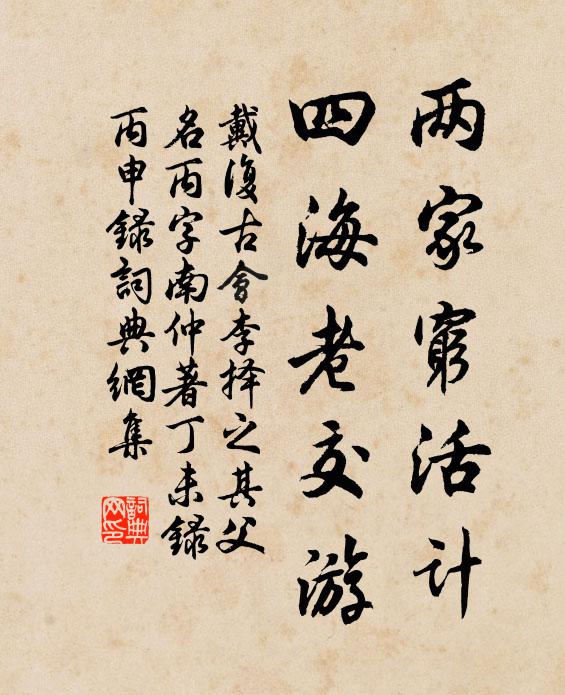 两家穷活计
四海老交游
戴復古會李择之其父
名丙字南仲著丁未録
丙申録詞典網集
詞典
网印